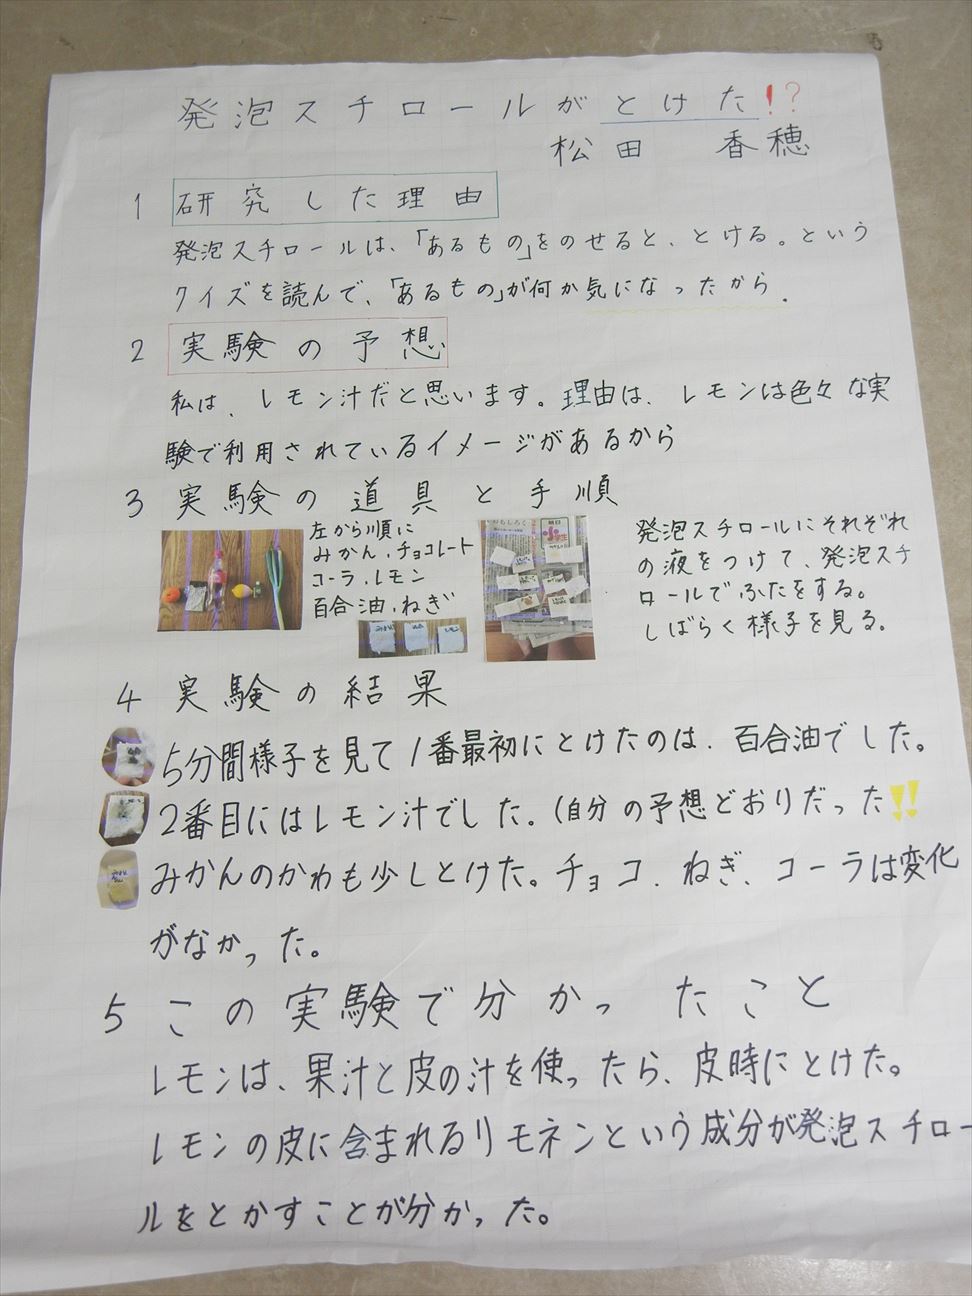 発泡スチロールがとけた!?
松田 香穂
1 研究した理由
発泡スチロールは、「あるもの」をのせると、とける。という
クイズを読んで、「あるもの」が何か気になったから.
2 実験の予想
私は、レモン汁だと思います。理由は、レモンは色々な実
験で利用されているイメージがあるから
3 実験の道具と手順
左から順に
みかん、チョコレート
コーラ、レモン
百合油、ねぎ
発泡スチロールにそれぞれ
の液をつけて、発泡スチ
ロールでふたをする。
しばらく様子を見る。
みかん
レモン
4 実験の結果
5分間様子を見て1番最初にとけたのは、百合油でした。
2番目にはレモン汁でした。(自分の予想どおりだった!!
みかんのかわも少しとけた。チョコ、ねぎ、コーラは変化
がなかった。
5 この実験で分かったこと
レモンは、果汁と皮の汁を使ったら、皮時にとけた。
レモンの皮に含まれるリモネンという成分が発泡スチロー
ルをとかすことが分かった。